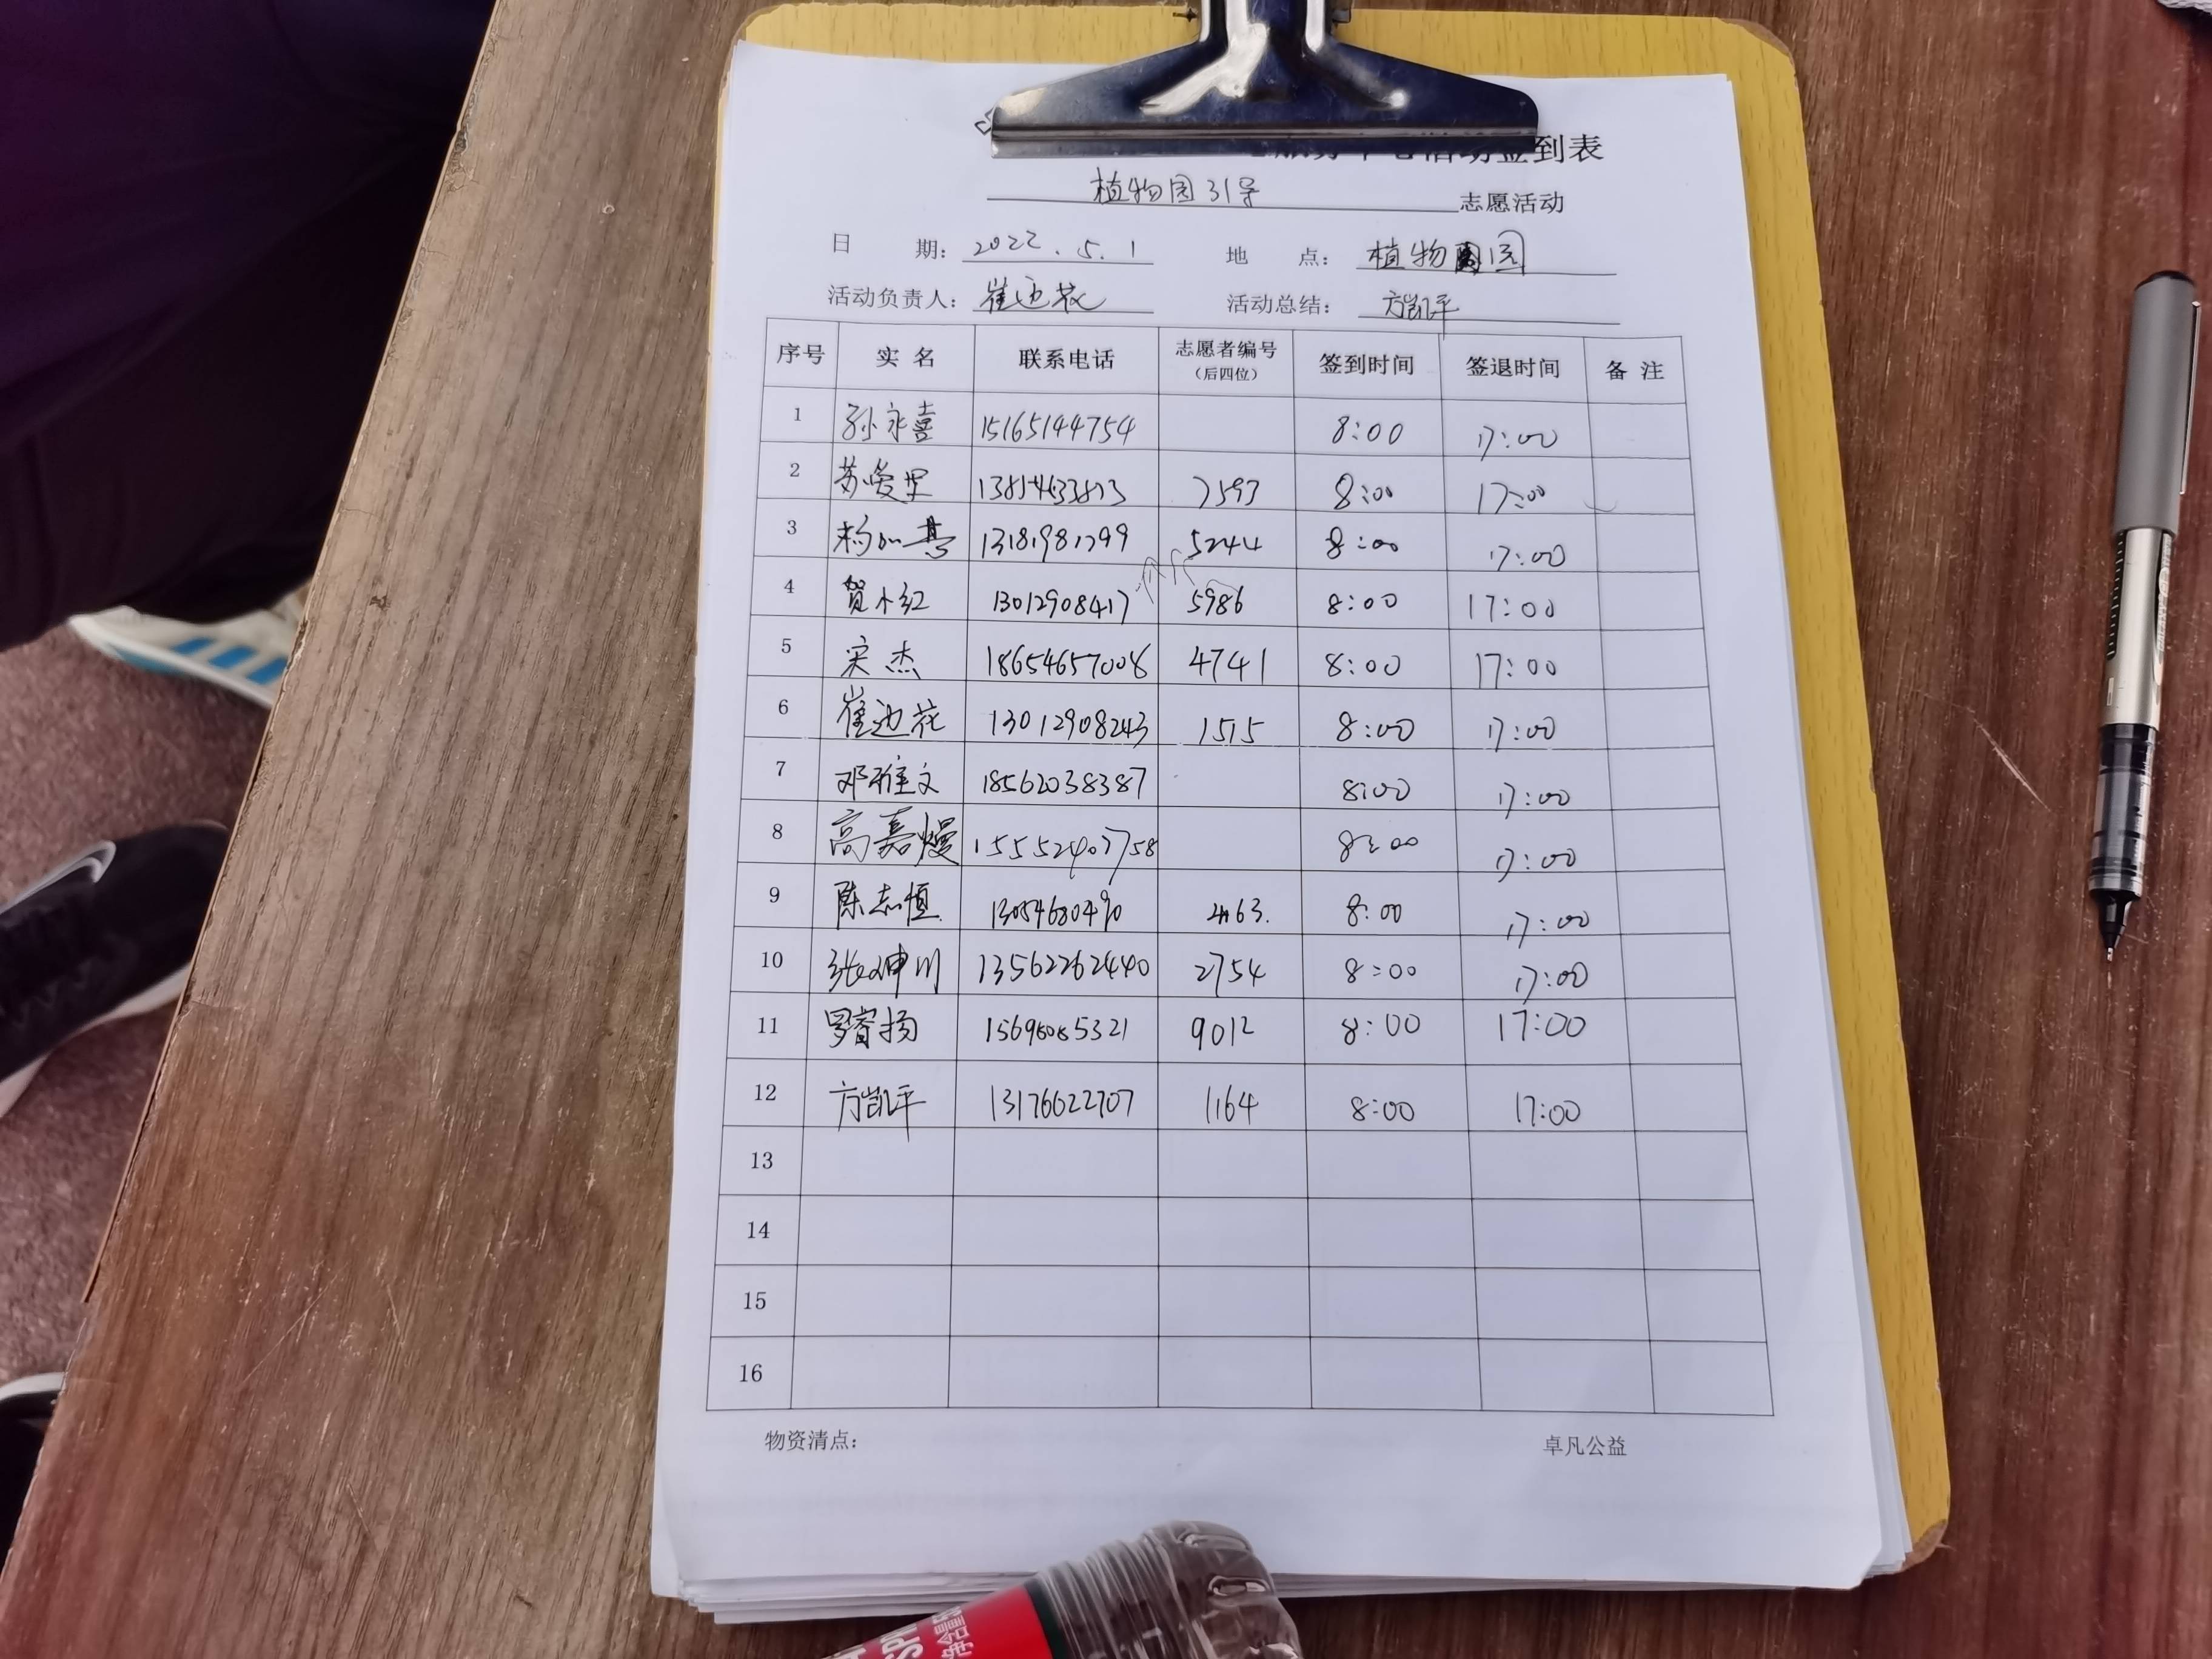 签到表
植物园引导 志愿活动
日 期: 2022.5.1 地 点: 植物园
活动负责人: 崔迎花 活动总结: 方凯平
序号 实名 联系电话 志愿者编号(后四位) 签到时间 签退时间 备注
1 孙永喜 15165144754 8:00 17:00
2 苏爱里 7593 8:00 17:00
3 13181981799 5244 8:00 17:00
4 贺小红 13012908417 5986 8:00 17:00
5 宋杰 18654657008 4741 8:00 17:00
6 崔迎花 13012908243 1515 8:00 17:00
7 邓雅文 18562038387 8:00 17:00
8 高嘉熳 15552407758 8:00 17:00
9 陈志恒 13054680490 8:00 17:00
10 张坤川 13562262440 2754 8:00 17:00
11 罗睿扬 9012 8:00 17:00
12 方凯平 13176622707 1164 8:00 17:00
13
14
15
16
物资清点: 卓凡公益